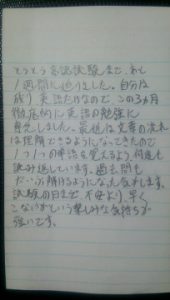 とうとう英語試験まで、あと
1週間に迫りました。自分は
残り英語だけなので、この3ヵ月
徹底的に英語の勉強に
専念しました。最近は文章の流れ
は理解できるようになってきたので
1つ1つの単語を覚えるよう何度も
読み返しています。過去問も
だいぶ解けるようになった気がします。
試験の日まで不安より、早く
こないかという楽しみな気持ちが
強いです。